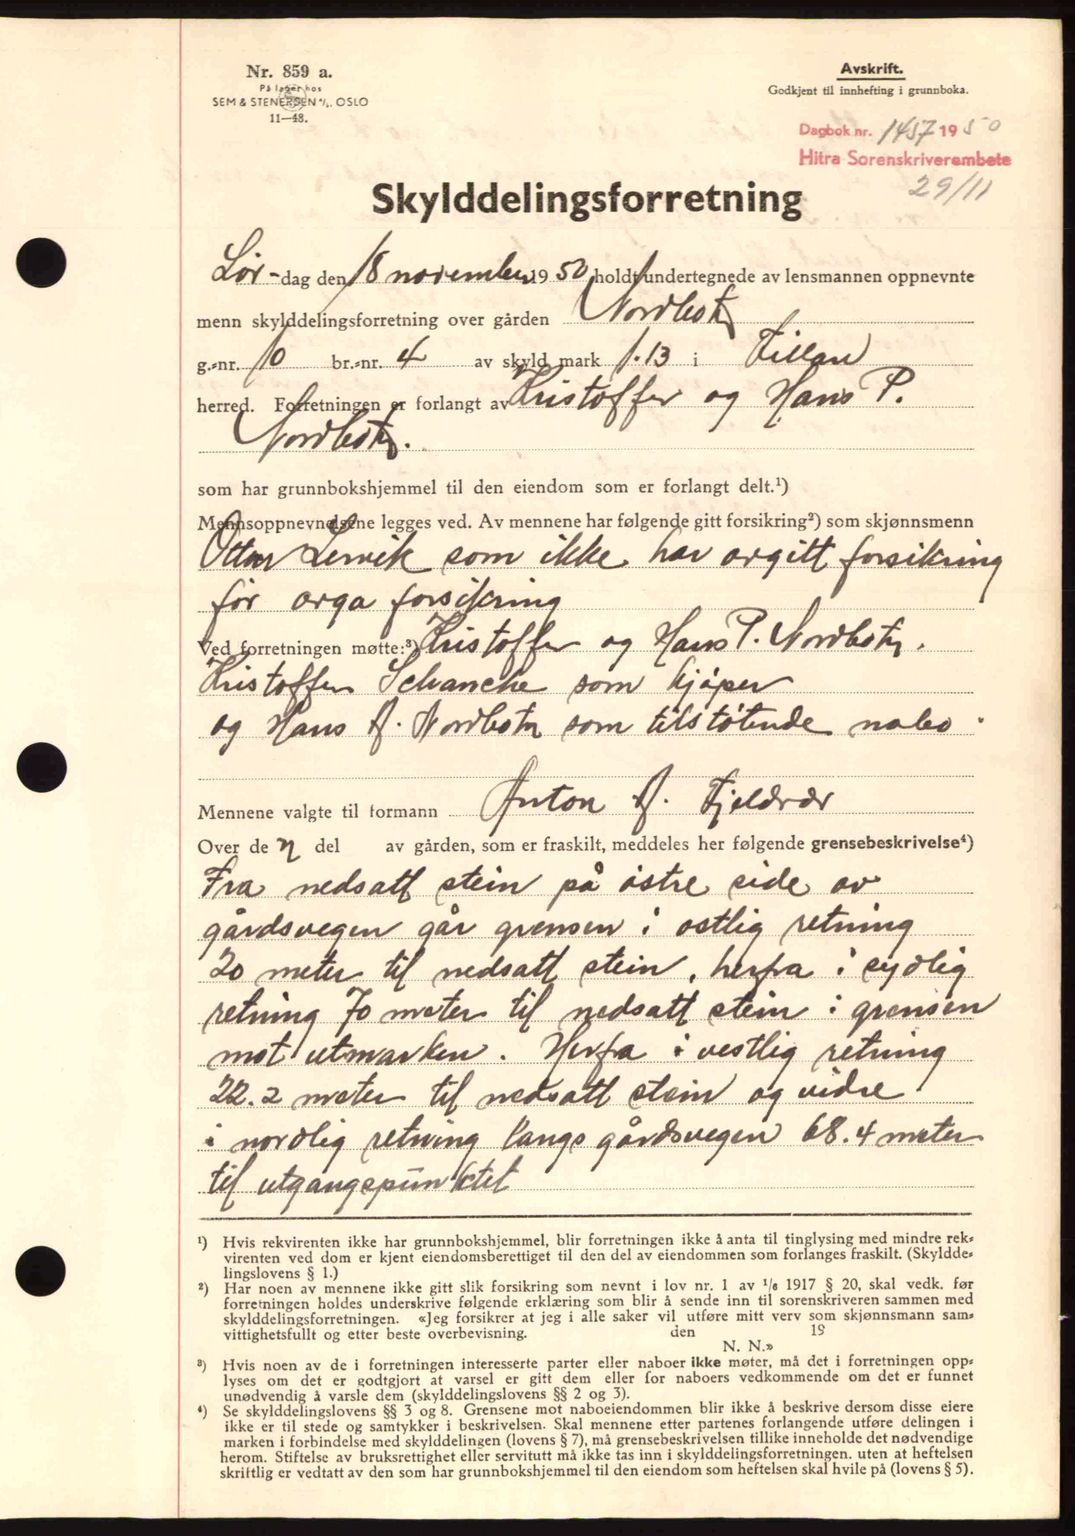 Nr. 859 a.
På lager hos
SEM & STENERSEN A/S, OSLO
11—48.
Avskrift.
Godkjent til innhefting i grunnboka.
Dagbok nr. 1457 1950
Hitra Sorenskriverembete
29/11
Skylddelingsforretning
Lør-dag den 18 november 1950 holdt undertegnede av lensmannen oppnevnte
menn skylddelingsforretning over gården Nordbotn
g.-nr. 10 br.-nr. 4 av skyld mark 1.13 i Fillan
herred. Forretningen er forlangt av Kristoffer og Hans P.
Nordbotn.
som har grunnbokshjemmel til den eiendom som er forlangt delt.¹)
Mennsoppnevnelsene legges ved. Av mennene har følgende gitt forsikring²) som skjønnsmenn
Ottar Lervik som ikke har avgitt forsikring
før avga forsikring
Ved forretningen møtte:³) Kristoffer og Hans P. Nordbotn.
Kristoffer Schanche som kjøper
og Hans A. Nordbotn som tilstøtende nabo.
Mennene valgte til formann Anton A. Fjeldvær
Over de n del av gården, som er fraskilt, meddeles her følgende grensebeskrivelse⁴)
Fra nedsatt stein på østre side av
gårdsvegen går grensen i østlig retning
20 meter til nedsatt stein, herfra i sydlig
retning 70 meter til nedsatt stein i grensen
mot utmarken. Herfra i vestlig retning
22.2 meter til nedsatt stein og vidre
i nordlig retning langs gårdsvegen 68.4 meter
til utgangspunktet
¹) Hvis rekvirenten ikke har grunnbokshjemmel, blir forretningen ikke å anta til tinglysing med mindre rek-
virenten ved dom er kjent eiendomsberettiget til den del av eiendommen som forlanges fraskilt. (Skyldde-
lingslovens § 1.)
²) Har noen av mennene ikke gitt slik forsikring som nevnt i lov nr. 1 av 1/6 1917 § 20, skal vedk. før
forretningen holdes underskrive følgende erklæring som blir å sende inn til sorenskriveren sammen med
skylddelingsforretningen. «Jeg forsikrer at jeg i alle saker vil utføre mitt verv som skjønnsmann sam-
vittighetsfullt og etter beste overbevisning. den 19
N. N.»
³) Hvis noen av de i forretningen interesserte parter eller naboer ikke møter, må det i forretningen opp-
lyses om det er godtgjort at varsel er gitt dem eller for naboers vedkommende om det er funnet
unødvendig å varsle dem (skylddelingslovens §§ 2 og 3).
⁴) Se skylddelingslovens §§ 3 og 8. Grensene mot naboeiendommen blir ikke å beskrive dersom disse eiere
ikke er til stede og samtykker i beskrivelsen. Skal mennene etter partenes forlangende utføre delingen i
marken i forbindelse med skylddelingen (lovens § 7), må grensebeskrivelsen tillike inneholde det nødvendige
herom. Stiftelse av bruksrettighet eller servitutt må ikke tas inn i skylddelingsforretningen, uten at heftelsen
skriftlig er vedtatt av den som har grunnbokshjemmel til den eiendom som heftelsen skal hvile på (lovens § 5).